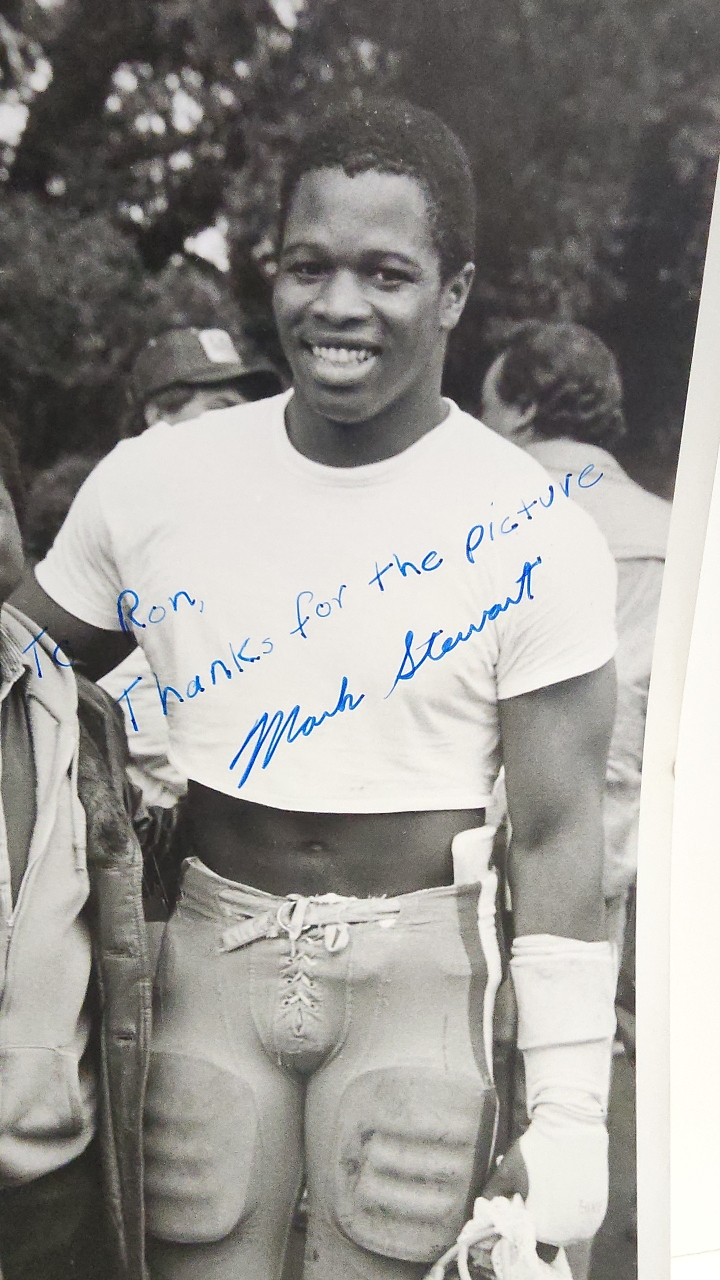 To Ron,
Thanks for the picture
Mark Stewart